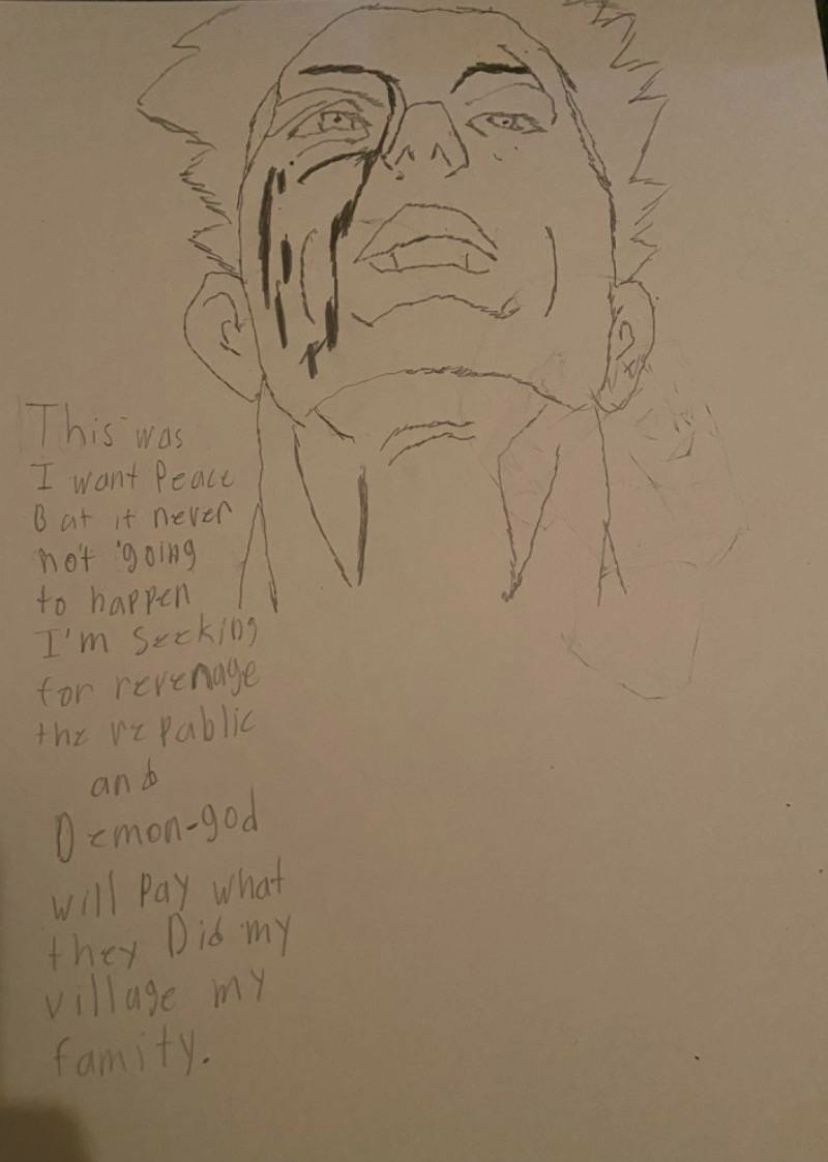 This was
I want Peace
But it never
not going
to happen
I'm seeking
for revenage
the republic
and
Demon-god
will pay what
they Did my
village my
famity.